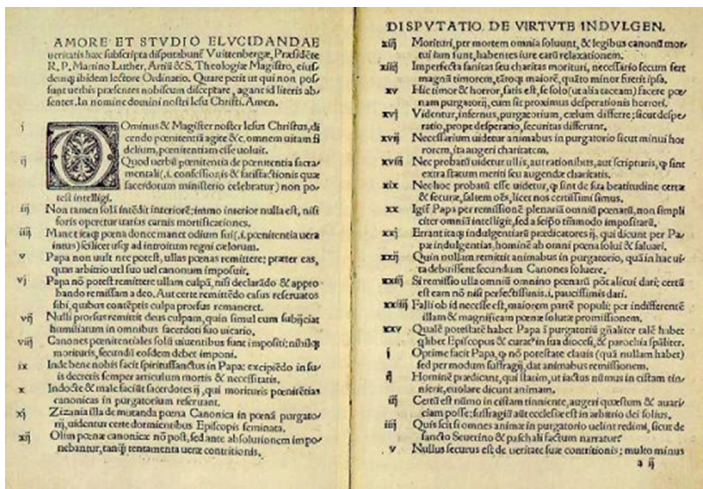 AMORE ET STVDIO ELVCIDANDAE
ueritatis hæc subscripta disputabunť Vuittenbergæ, Præsidẽte
R. P. Martino Luther, Artiũ & S. Theologiæ Magistro, eius/
demq; ibidem lectore Ordinario. Quare petit ut qui non pos/
sunt uerbis præsentes nobiscum disceptare, agant id literis ab/
sentes. In nomine domini nostri Iesu Christi. Amen.
i DOminus & Magister noster Iesus Christus, di/
cendo pœnitentiã agite &c. omnem uitam fi/
delium, pœnitentiam esse uoluit.
ij Quod uerbũ pœnitentia de pœnitentia sacra/
mentali (.i. confessionis & satisfactionis quæ
sacerdotum ministerio celebratur) non po/
test intelligi.
iij Non tamen solã intẽdit interiorẽ; immo interior nulla est, nisi
foris operetur uarias carnis mortificationes.
iiij Manet itaq; pœna donec manet odium sui (.i. pœnitentia uera
intus) scilicet usq; ad introitum regni cælorum.
v Papa non uult nec potest, ullas pœnas remittere; præter eas,
quas arbitrio uel suo uel canonum imposuit.
vj Papa nõ potest remittere ullam culpã, nisi declarãdo & appro/
bando remissam a deo. Aut certe remittẽdo casus reseruatos
sibi, quibus contẽptis culpa prorsus remaneret.
vij Nulli prorsus remittit deus culpam, quin simul eum subijciat
humiliatum in omnibus sacerdoti suo uicario.
viij Canones pœnitentiales solũ uiuentibus sunt impositi; nihilq;
morituris, secundũ eosdem debet imponi.
ix Inde bene nobis facit spiritussanctus in Papa; excipiẽdo in su/
is decretis semper articulum mortis & necessitatis.
x Indocte & male faciũt sacerdotes ij, qui morituris pœnitẽtias
canonicas in purgatorium reseruant.
xj Zizania illa de mutanda pœna Canonica in pœnã purgato/
rij, uidentur certe dormientibus Episcopis seminata.
xij Olim pœnæ canonicæ nõ post, sed ante absolutionem impo/
nebantur, tanq̃ tentamenta ueræ contritionis.
DISPVTATIO DE VIRTVTE INDVLGEN.
xiij Morituri, per mortem omnia soluunt, & legibus canonũ mor/
tui iam sunt, habentes iure earũ relaxationem.
xiiij Imperfecta sanitas seu charitas morituri, necessario secum fert
magnã timorem, tãtoq; maiorẽ, quãto minor fuerit ipsa.
xv Hic timor & horror, satis est, se solo (ut alia taceam) facere pœ/
nam purgatorij, cum sit proximus desperationis horrori.
xvj Videntur, infernus, purgatorium, cælum differre; sicut despe/
ratio, prope desperatio, securitas differunt.
xvij Necessarium uidetur animabus in purgatorio sicut minui hor/
rorem, ita augeri charitatem.
xviij Nec probatũ uidetur ullis, aut rationibus, aut scripturis, q̃ sint
extra statum meriti seu augendæ charitatis.
xix Nec hoc probatũ esse uidetur, q̃ sint de sua beatitudine certæ
& securæ, saltem oẽs, licet nos certissimi simus.
xx Igiť Papa per remissionẽ plenariã omniũ pœnarũ, non simpli
citer omniũ intelligit, sed a seipõ tm̃modo impositarũ.
xxj Errant itaq; indulgentiarũ prædicatores ij, qui dicunt per Pa/
pæ indulgentias, hominẽ ab omni pœna solui & saluari.
xxij Quin nullam remittit animabus in purgatorio, quã in hac ui/
ta debuissent secundum Canones soluere.
xxiij Si remissio ulla omniũ omnino pœnarũ põt alicui dari; certũ
est eam nõ nisi perfectissimis .i. paucissimis dari.
xxiiij Falli ob id necesse est, maiorem partẽ populi; per indifferentẽ
illam & magnificam pœnæ solutæ promissionem.
xxv Qualẽ potestatẽ habet Papa ĩ purgatoriũ gñaliter talẽ habet
q̃libet Episcopus & curať in sua diocesi, & parochia spãliter.
i Optime facit Papa, q̃ nõ potestate clauis (quã nullam habet)
sed per modum suffragij, dat animabus remissionem.
ij Hominẽ prædicant, qui statim, ut iactus nũmus in cistam tin/
nierit, euolare dicunt animam.
iij Certũ est nũmo in cistam tinniente, augeri quæstum & auari/
ciam posse; suffragiũ aũt ecclesiæ est in arbitrio dei solius.
iiij Quis scit si omnes animæ in purgatorio uelint redimi, sicut de
sancto Seuerino & paschali factum narratur.
v Nullus securus est de ueritate suæ contritionis; multo minus
a ij